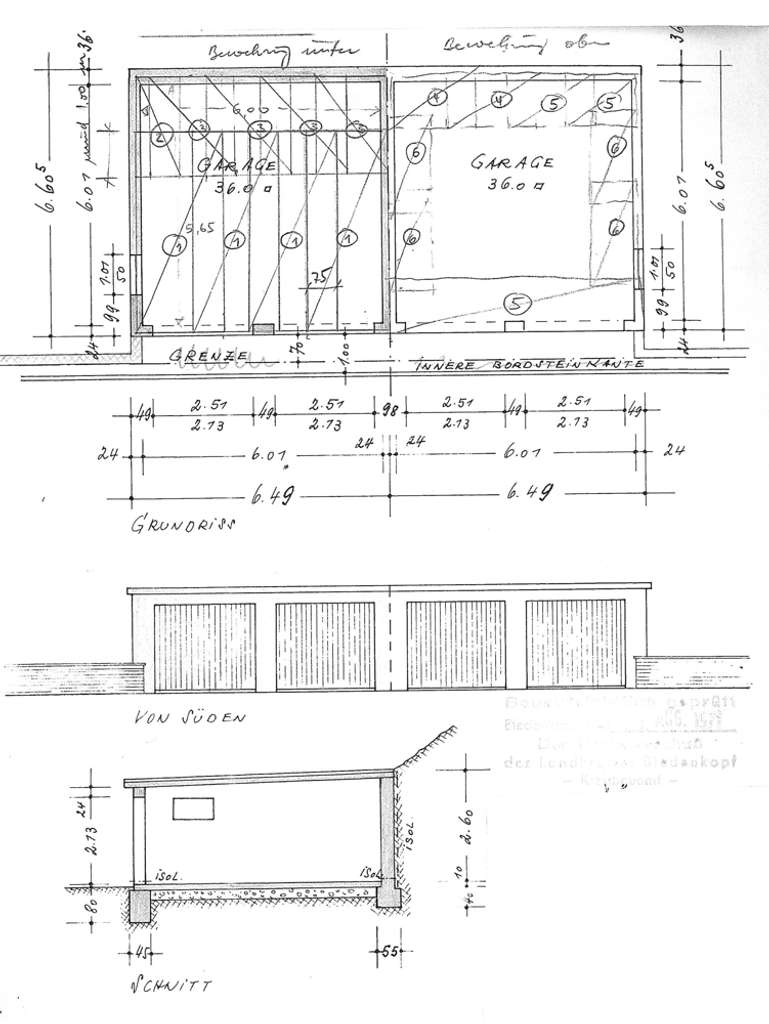 Bewehrung unten
Bewehrung oben
36.
36
6.00
2
3
3
3
3
4
4
5
5
GARAGE
36.0 □
GARAGE
36.0 □
6
6
6
6
6.60⁵
6.01
1.00 m
6.01
6.60⁵
5,65
1
1
1
1
75
1.01
50
1.01
50
99
99
5
24
24
GRENZE
70
1.00
INNERE BORDSTEINKANTE
49
2.51
2.13
49
2.51
2.13
98
2.51
2.13
49
2.51
2.13
49
24
6.01
24
24
6.01
24
6.49
6.49
GRUNDRISS
VON SÜDEN
geprüft
der Landkreise Biedenkopf
24
2.13
80
isol.
isol.
isol.
2.60
10
40
45
55
SCHNITT